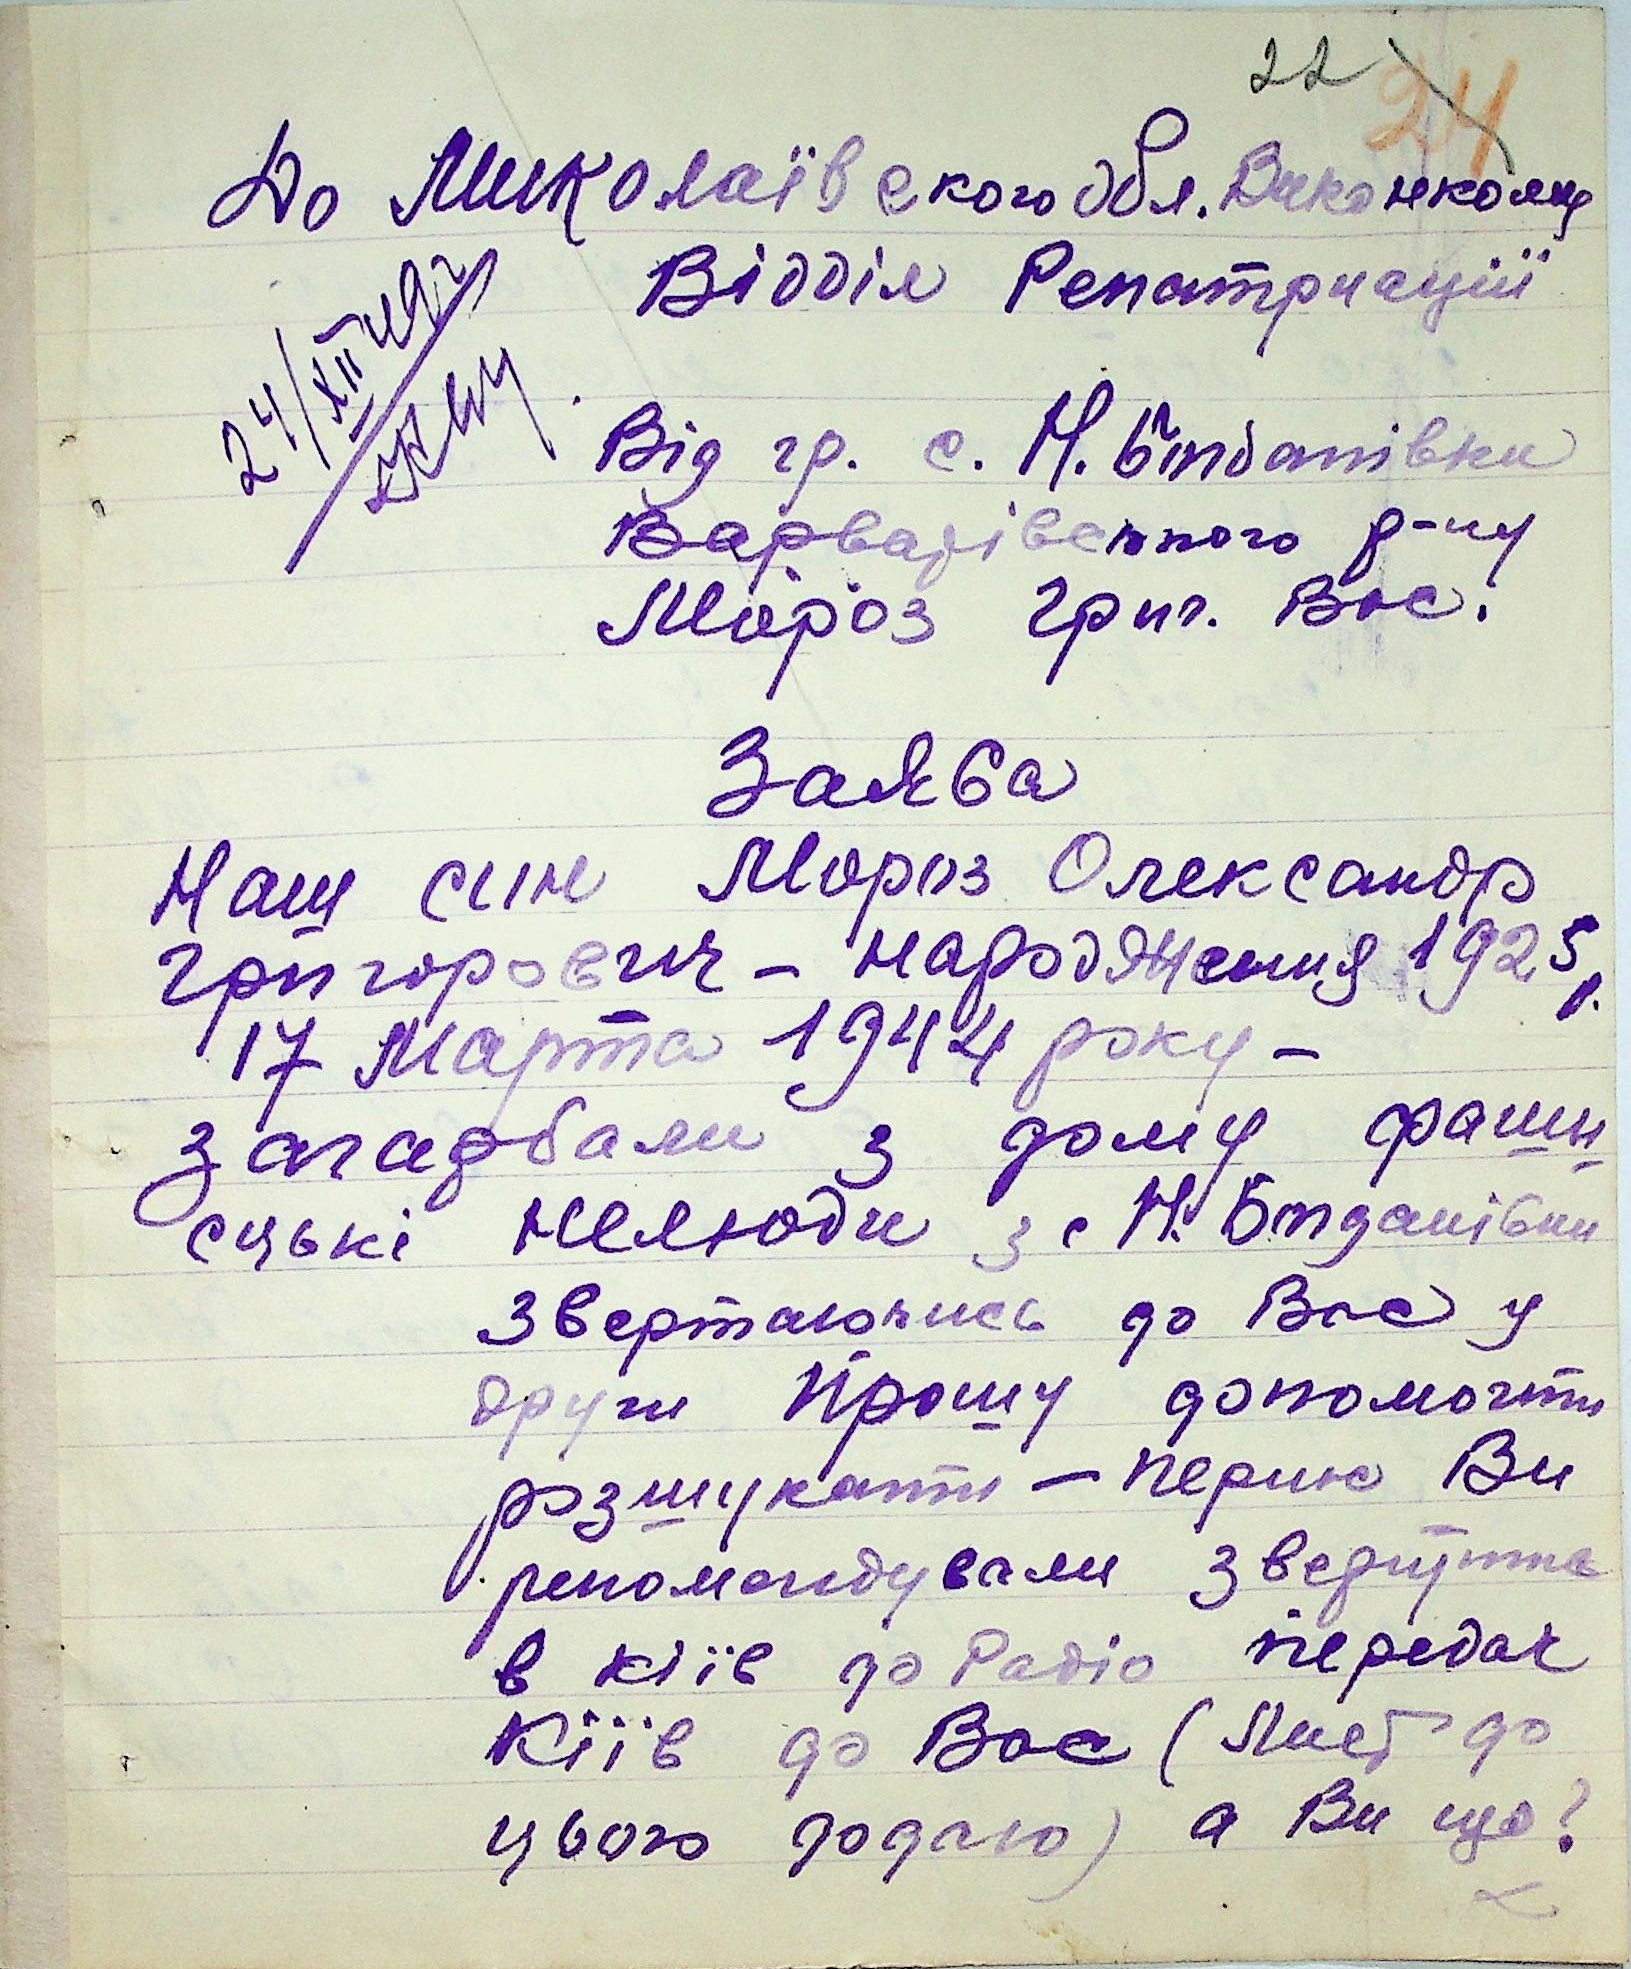 22 24
До Миколаївского обл. Виконкому
Відділ Репатриації
24/XII
Від гр. с. Н. Богданівки
Варварівского р-ну
Мороз Григ. Вас.
Заява
Наш син Мороз Олександр
Григорович – народження 1925 р.
17 Марта 1944 року –
загарбали з дому фаши
сцькі нелюди з с Н. Богданівки
звертаючись до Вас у
други Прошу допомогти
розшукати – перше Ви
рекомендували звернутись
в Кіїв до Радіо передач
Кіїв до Вас (Лист до
цього додаю) а Ви що?